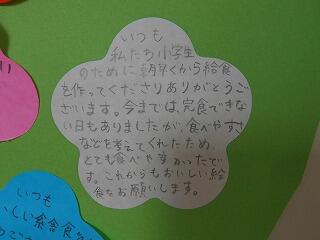 いつも
私たち小学生
のために朝早くから給食
を作ってくださりありがとうご
ざいます。今までは、完食できな
い日もありましたが、食べやすさ
などを考えてくれたため、
とても食べやすかったで
す。これからもおいしい給
食をお願いします。
いつも
いしい給食